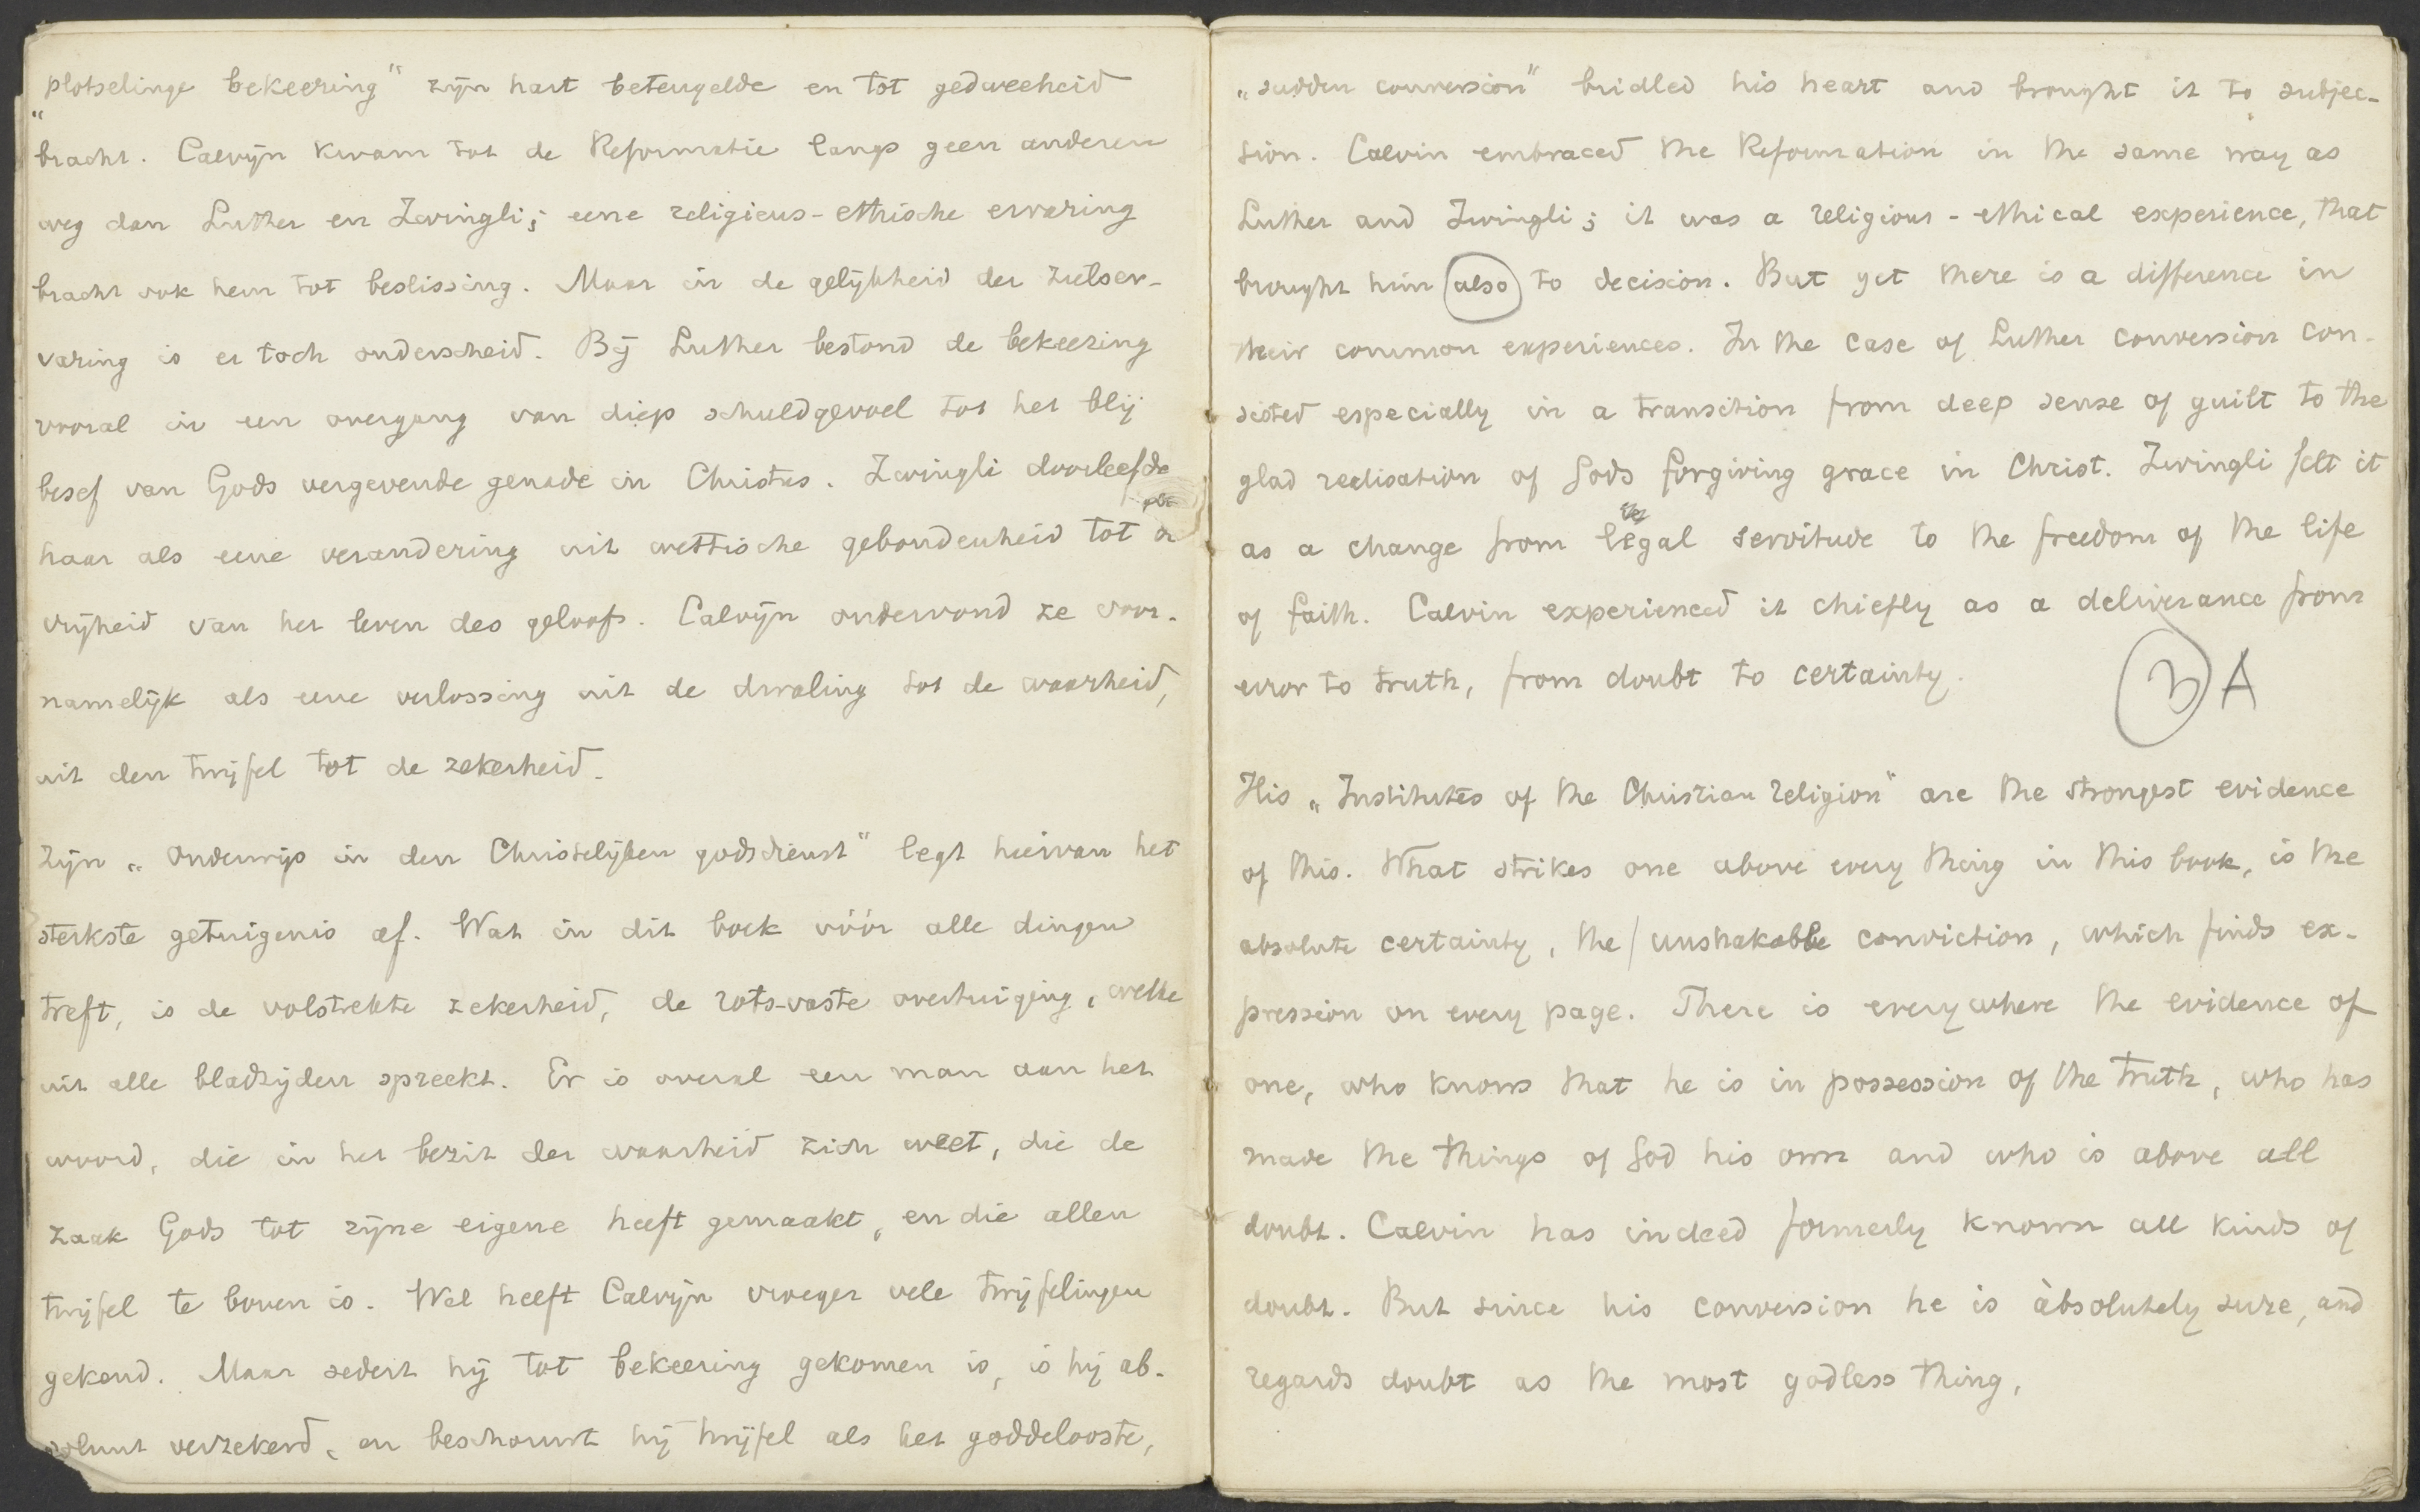 „plotselinge bekeering" zijn hart beteugelde en tot gedweeheid
bracht. Calvijn kwam tot de Reformatie langs geen anderen
weg dan Luther en Zwingli; eene religieus-ethische ervaring
bracht ook hem tot beslissing. Maar in de gelijkheid der zielser-
varing is er toch onderscheid. Bij Luther bestond de bekeering
vooral in een overgang van diep schuldgevoel tot het blij
besef van Gods vergevende genade in Christus. Zwingli doorleefde
haar als eene verandering uit wettische gebondenheid tot de
vrijheid van het leven des geloofs. Calvijn ondervond ze voor-
namelijk als eene verlossing uit de dwaling tot de waarheid,
uit den twijfel tot de zekerheid.
Zijn „Onderwijs in den Christelijken godsdienst" legt hiervan het
sterkste getuigenis af. Wat in dit boek vóór alle dingen
treft, is de volstrekte zekerheid, de rots-vaste overtuiging, welke
uit alle bladzijden spreekt. Er is overal een man aan het
woord, die in het bezit der waarheid zich weet, die de
zaak Gods tot zijne eigene heeft gemaakt, en die allen
twijfel te boven is. Wel heeft Calvijn vroeger vele twijfelingen
gekend. Maar sedert hij tot bekeering gekomen is, is hij ab-
soluut verzekerd, en beschouwt hij twijfel als het goddelooste,
„sudden conversion" bridled his heart and brought it to subjec-
tion. Calvin embraced the Reformation in the same way as
Luther and Zwingli; it was a religious-ethical experience, that
brought him also to decision. But yet there is a difference in
their common experiences. In the case of Luther conversion con-
sisted especially in a transition from deep sense of guilt to the
glad realisation of Gods forgiving grace in Christ. Zwingli felt it
as a change from legal servitude to the freedom of the life
of faith. Calvin experienced it chiefly as a deliverance from
error to truth, from doubt to certainty.
3 A
His „Institutes of the Christian religion" are the strongest evidence
of this. What strikes one above every thing in this book, is the
absolute certainty, the / unshakable conviction, which finds ex-
pression on every page. There is everywhere the evidence of
one, who knows that he is in possession of the truth, who has
made the things of God his own and who is above all
doubt. Calvin has indeed formerly known all kinds of
doubt. But since his conversion he is àbsolutely sure, and
regards doubt as the most godless thing,